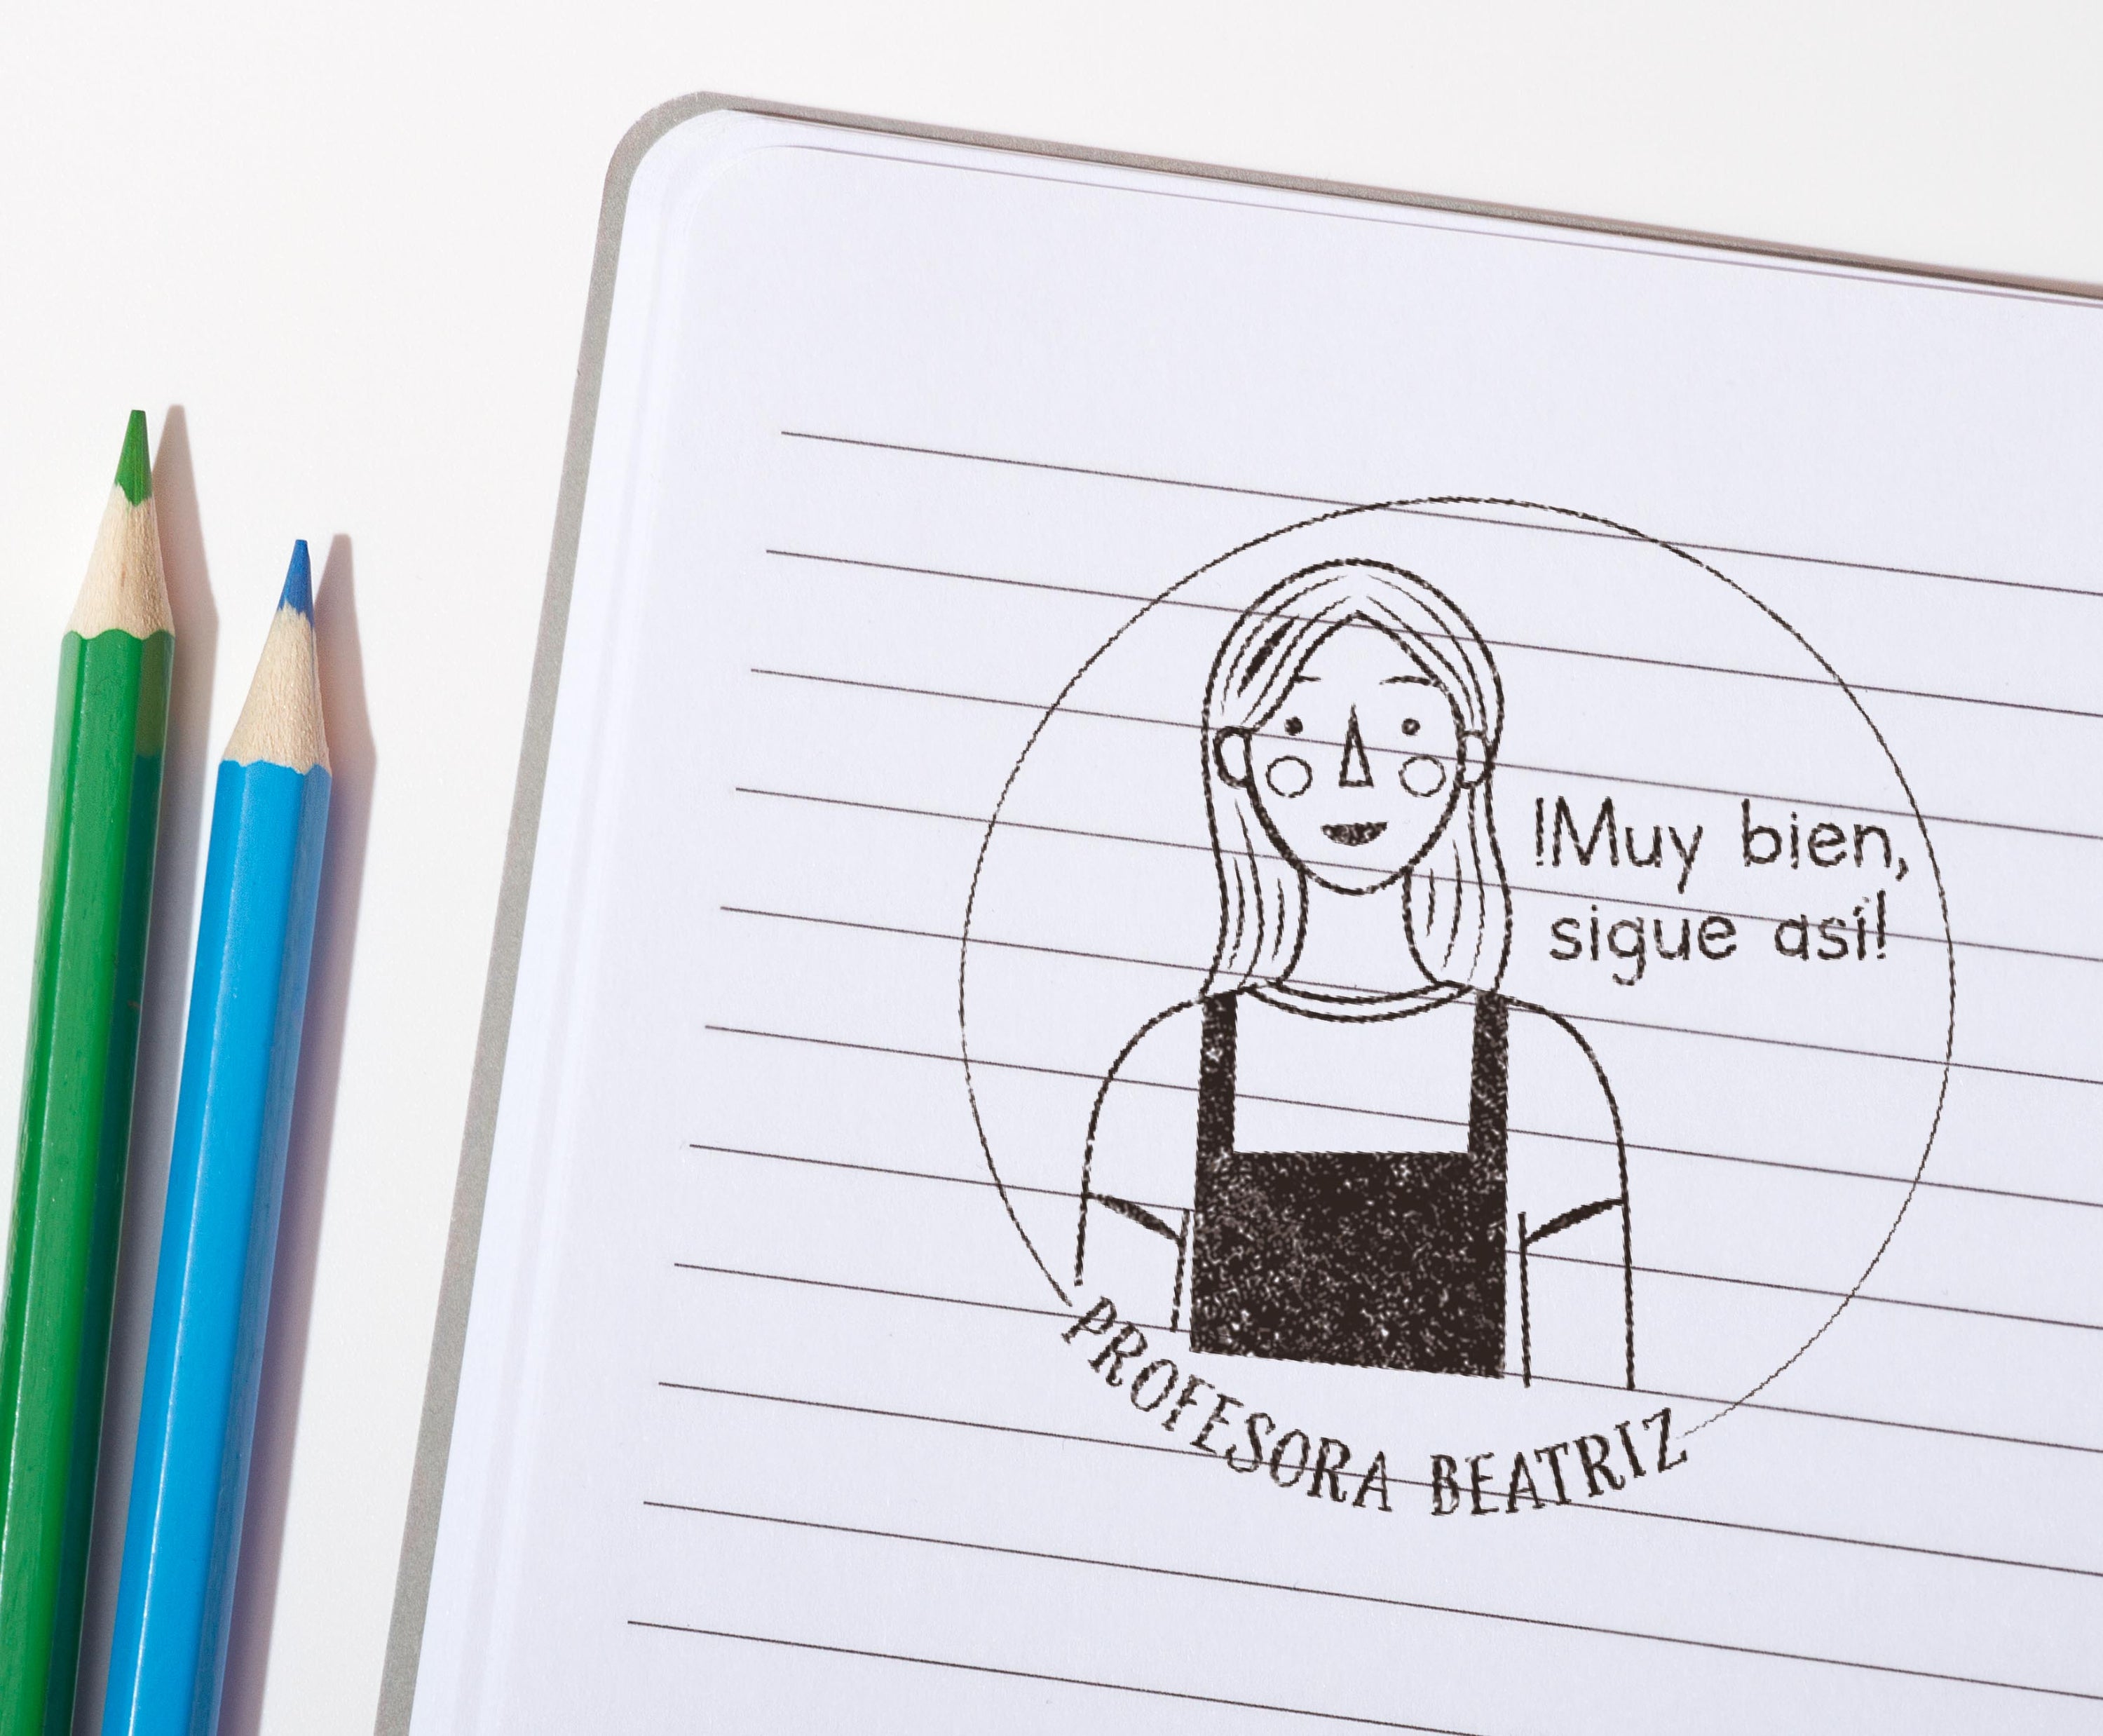 !Muy bien,
sigue así!
PROFESORA BEATRIZ